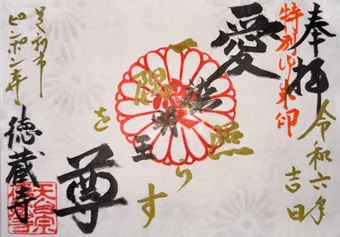 奉拝
特別御朱印
令和六年
吉日
愛染明王
一隅を照らす
尊
呉市
ピンポン寺
徳蔵寺